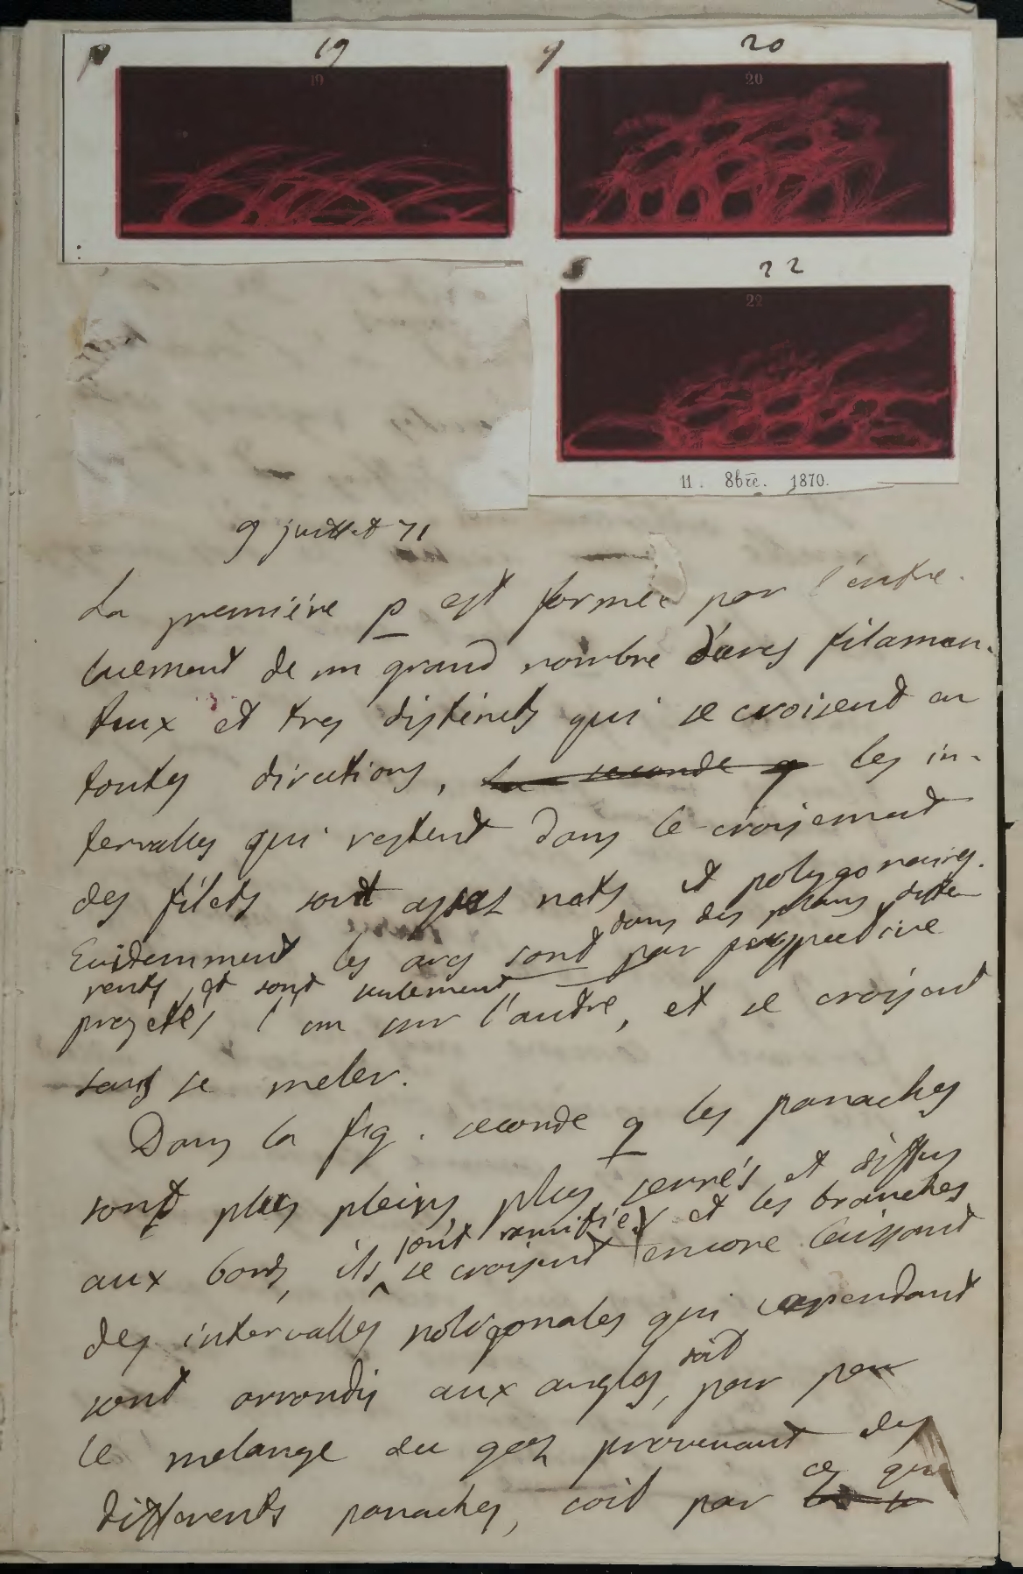 p 19 q 20
19 20
s 22
22
11. 8bre. 1870.
9 juillet 71
La première p est formée par l'entre-
lacement de un grand nombre d'arcs filamen-
teux et tres distincts qui se croisent en
toutes directions, la seconde q les in-
tervalles qui restent dans le croisement
des filets sont assez nets et polygonaires.
dans des plans diffe
Evidemment les arcs sont par perspective
rents, et sont seulement
projetés l'un sur l'autre, et se croisent
sans se meler.
Dans la fig. seconde q les panaches
sont plus pleins, plus serrés et diffus
sont ramifiés et les branches
aux bords, ils se croisent encore laissant
des intervalles poligonales qui cependant
soit
sont arrondis aux angles, pour par
le melange du gaz provenant des
ce que
differents panaches, soit par